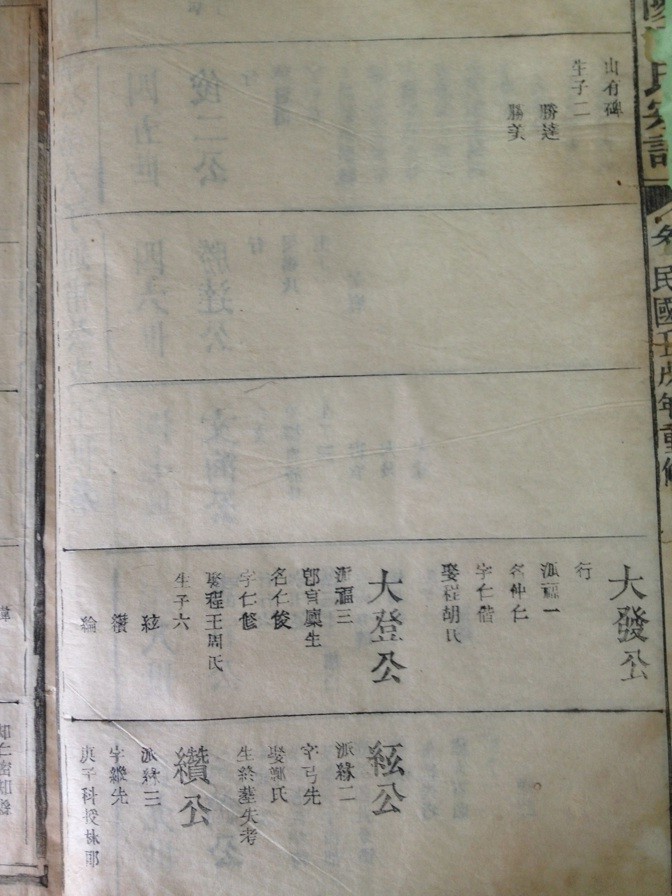 氏宗譜
民國壬戌年重修
山有碑
生子二
勝達
勝美
大發公
行
派福一
名仲仁
字仁偕
娶程胡氏
大登公
派福三
郡庠廩生
名仁俊
字仁修
娶程王周氏
生子六
絃
纘
綸
絃公
派緣二
字弓先
娶 氏
生終塟失考
纘公
派緣三
字纘先
庚子科授